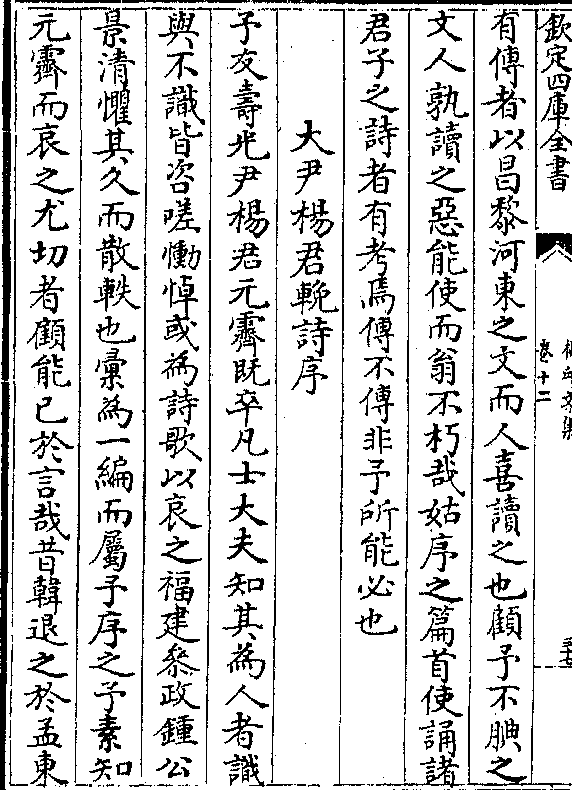 欽定四庫全書
卷十二
有傳者以昌黎河東之文而人喜讀之也顧予不腆之
文人孰讀之惡能使而翁不朽哉姑序之篇首使誦諸
君子之詩者有考焉傳不傳非予所能必也
大尹楊君輓詩序
予友壽光尹楊君元霽既卒凡士大夫知其為人者識
與不識皆咨嗟慟悼或為詩歌以哀之福建叅政鍾公
景清懼其久而散軼也彙為一編而屬予序之予素知
元霽而哀之尤切者顧能已於言哉昔韓退之於孟東